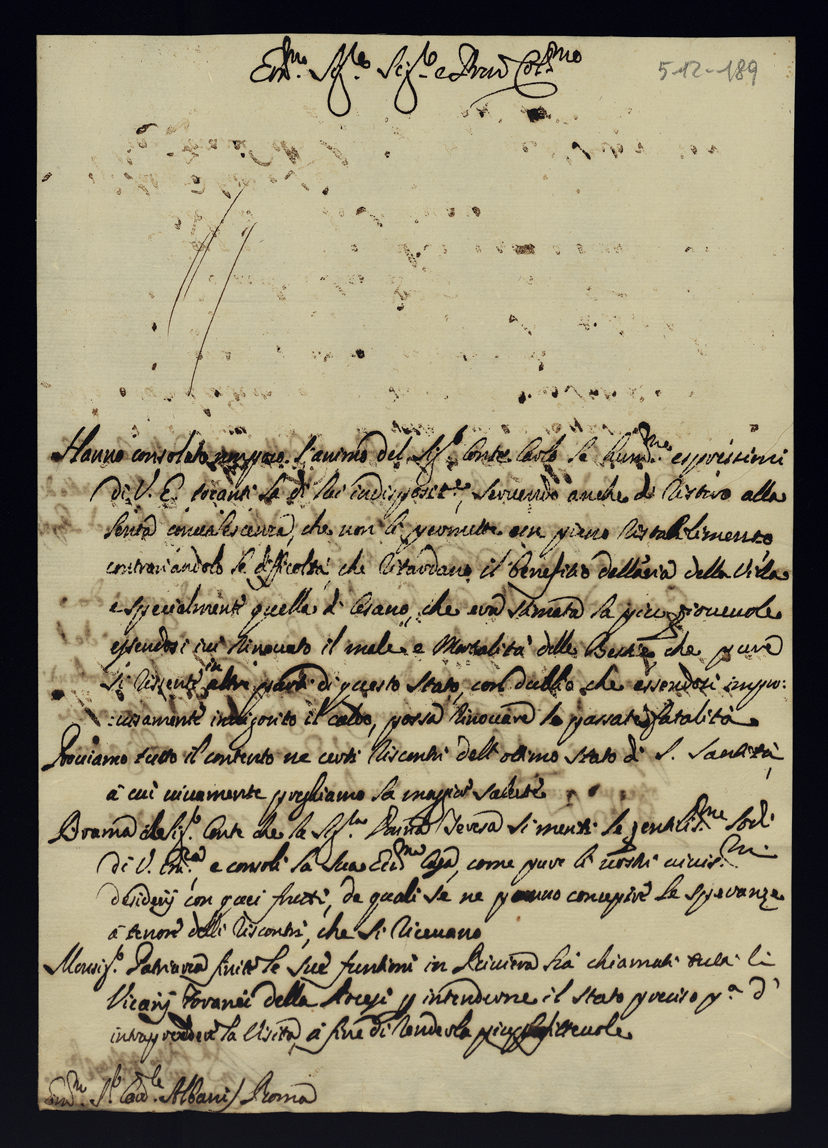 Em.mo Sig.re Sig.re e Pron Col.mo
5-12-189
Hanno consolato non poco l'animo del Sig.r Conte Carlo le hum.me espressioni
di V. E. toccanti la di lui indisposit.e, servendo anche di ristoro alla
lenta convalescenza, che non li permette un pieno ristabilimento
contrariandolo le difficoltà, che ritardano il benefitio dell'aria della Villa
e specialmente quella di Cesano, che era stimata la più giovevole
essendosi ivi rinovato il male, e Mortalità delle Bestie, che pure
si risente in altre parti di questo Stato, con dubbio che essendosi impro:
:visamente invigorito il caldo, possa rinovare le passate fatalità
Proviamo tutto il contento ne certi riscontri dell'ottimo stato di S. Santità,
à cui vivamente preghiamo la maggior salute
Brama il Sig.r Conte che la Sig.ra Donna Teresa si meriti le gentilis.me lodi
di V. Em.za e consoli la sua Ecc.ma Casa, come pure li nostri vivis.mi
desiderij con quei frutti, de quali se ne ponno concepire le speranze
à tenore delli riscontri, che si ricevano
Monsig.r Patriarca finite le sue funtioni in Riviera hà chiamati tutti li
Vicarij foranei della Diocesi p intenderne il stato preciso p.a d'
intraprendere la Visita, à fine di renderla più profittevole
Em.mo S.r Card.le Albani / Roma